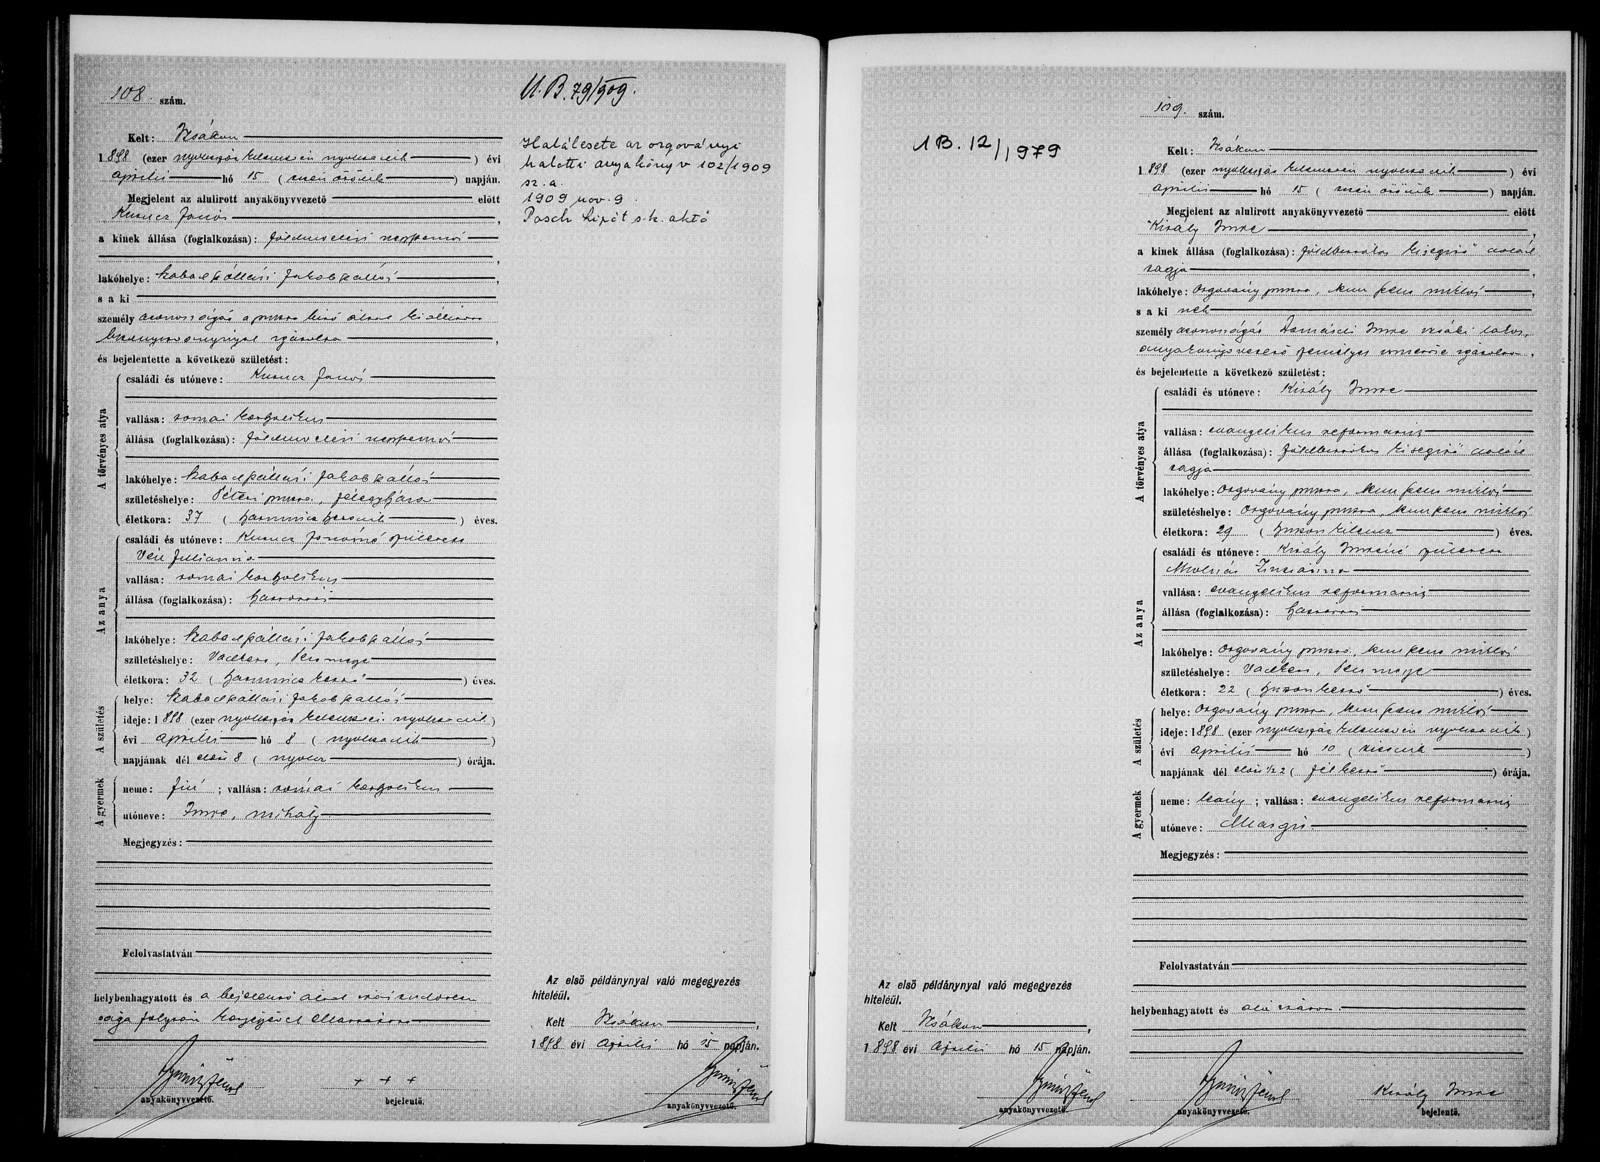 108. szám.
Kelt: Izsákon
1898 (ezer nyolcszáz kilencven nyolcadik) évi
április hó 15 (tizen ötödik) napján.
Megjelent az alulirott anyakönyvvezető előtt
János,
a kinek állása (foglalkozása): földmivelési napszámos
,
lakóhelye: Szabadszállási Jakabszállás,
s a ki
személy azonosságát a puszta biró által kiállitott
bizonyitványnyal igazolta,
és bejelentette a következő születést:
A törvényes atya
családi és utóneve: János
vallása: romai katholikus
állása (foglalkozása): földmivelési napszámos
lakóhelye: Jakabszállás
születéshelye: Péteri puszta, Félegyháza
életkora: 37 (harminczhetedik) éves.
Az anya
családi és utóneve: Jánosné született
Julianna
vallása: romai katholikus
állása (foglalkozása): háztartás
lakóhelye: Jakabszállás
születéshelye: Vadkert, Pestmegye
életkora: 32 (harminczkettő) éves.
A születés
helye: Jakabszállás
ideje: 1898 (ezer nyolcszáz kilencven nyolcadik)
évi április hó 8 (nyolcadik)
napjának dél előtt 8 (nyolcz) órája.
A gyermek
neme: fiú; vallása: római katholikus
utóneve: Imre, Mihály
Megjegyzés:
Felolvastatván
helybenhagyatott és a bejelentő által irástudatlan
sága folytán kézjegyével elláttatott
anyakönyvvezető.
+ + +
bejelentő.
U.B. 79/909.
Halálesete az orgoványi
halotti anyakönyv 102/1909
sz. a.
1909 nov. 9.
Pasch Lipót s.k. aktó
Az első példánynyal való megegyezés
hiteléül.
Kelt Izsákon,
1898 évi április hó 15 napján.
anyakönyvvezető.
1B. 12/1979
Az első példánynyal való megegyezés
hiteléül.
Kelt Izsákon,
1898 évi április hó 15 napján.
anyakönyvvezető.
109. szám.
Kelt: Izsákon
1898 (ezer nyolcszáz kilencven nyolcadik) évi
április hó 15 (tizen ötödik) napján.
Megjelent az alulirott anyakönyvvezető előtt
Király Imre,
a kinek állása (foglalkozása): földbirtokos kisegitő család
tagja,
lakóhelye: Orgovány puszta, Kun szent miklós,
s a ki nek
személy azonosságát Imre izsáki lakos,
anyakönyvvezető személyes ismerőse igazolta,
és bejelentette a következő születést:
A törvényes atya
családi és utóneve: Király Imre
vallása: evangelikus reformatus
állása (foglalkozása): földbirtokos kisegitő család
tagja
lakóhelye: Orgovány puszta, Kun szent miklós
születéshelye: Orgovány puszta, Kun szent miklós
életkora: 29 (huszonkilencz) éves.
Az anya
családi és utóneve: Király Imréné született
Zsuzsánna
vallása: evangelikus reformatus
állása (foglalkozása): háztartás
lakóhelye: Orgovány puszta, Kun szent miklós
születéshelye: Vadkert, Pestmegye
életkora: 22 (huszonkettő) éves.
A születés
helye: Orgovány puszta, Kun szent miklós
ideje: 1898 (ezer nyolcszáz kilencven nyolcadik)
évi április hó 10 (tizedik)
napjának dél előtt 1/2 2 (fél kettő) órája.
A gyermek
neme: leány; vallása: evangelikus reformatus
utóneve: Margit
Megjegyzés:
Felolvastatván
helybenhagyatott és aláiratott.
anyakönyvvezető.
Király Imre
bejelentő.